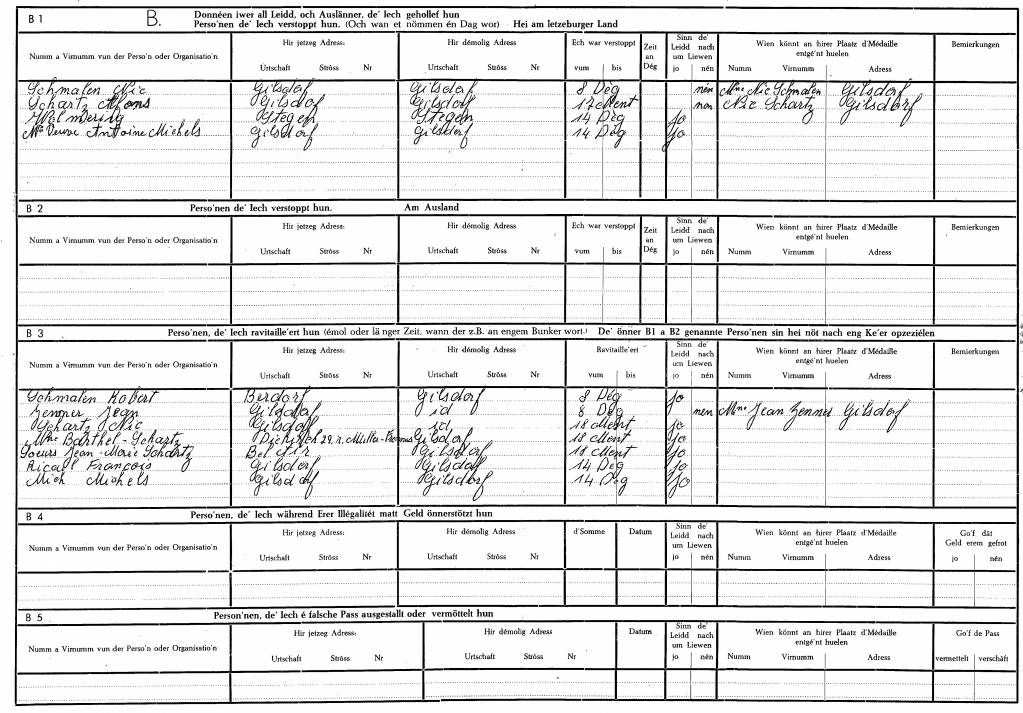 B 1 B. Donnéen iwer all Leidd, och Auslänner, de' Iech gehollef hun
Perso'nen de' Iech verstoppt hun. (Och wan et nömmen én Dag wor) Hei am letzeburger Land
Numm a Virnumm vun der Perso'n oder Organisatio'n
Hir jetzeg Adress: Urtschaft Ströss Nr
Hir démolig Adress Urtschaft Ströss Nr
Ech war verstoppt vum bis
Zeit an Dég
Sinn de' Leidd nach um Liewen jo nén
Wien könnt an hirer Plaatz d'Médaille entgé'nt huelen Numm Virnumm Adress
Bemierkungen
Schmalen Nic Gilsdorf Gilsdorf 8 Dég nén Mme Nic Schmalen Gilsdorf
Schartz Alfons Gilsdorf Gilsdorf nen Nic Schartz Gilsdorf
Stegen Stegen 14 Dég jo
Veuve Antoine Michels Gilsdorf Gilsdorf 14 Dég jo
B 2 Perso'nen de' Iech verstoppt hun. Am Ausland
Numm a Virnumm vun der Perso'n oder Organisatio'n
Hir jetzeg Adress: Urtschaft Ströss Nr
Hir démolig Adress Urtschaft Ströss Nr
Ech war verstoppt vum bis
Zeit an Dég
Sinn de' Leidd nach um Liewen jo nén
Wien könnt an hirer Plaatz d'Médaille entgé'nt huelen Numm Virnumm Adress
Bemierkungen
B 3 Perso'nen, de' Iech ravitaille'ert hun (émol oder lä nger Zeit, wann der z.B. an engem Bunker wort.) De' önner B1 a B2 genannte Perso'nen sin hei nöt nach eng Ke'er opzeziélen
Numm a Virnumm vun der Perso'n oder Organisatio'n
Hir jetzeg Adress: Urtschaft Ströss Nr
Hir démolig Adress Urtschaft Ströss Nr
Ravitaille'ert vum bis
Sinn de' Leidd nach um Liewen jo nén
Wien könnt an hirer Plaatz d'Médaille entgé'nt huelen Numm Virnumm Adress
Bemierkungen
Schmalen Robert Berdorf Gilsdorf 8 Dég jo
Zenner Jean Gilsdorf id 8 Dég nen Mme Jean Zenner Gilsdorf
Schartz Nic Gilsdorf id 18 Ment jo
Mme Barthel-Schartz 29, r. Gilsdorf 18 Ment jo
Soeurs Jean-Marie Schartz Bel Air Gilsdorf 18 Ment jo
François Gilsdorf Gilsdorf 14 Dég jo
Mich Michels Gilsdorf Gilsdorf 14 Dég jo
B 4 Perso'nen, de' Iech während Erer Illégalitét matt Geld önnerstötzt hun
Numm a Virnumm vun der Perso'n oder Organisatio'n
Hir jetzeg Adress: Urtschaft Ströss Nr
Hir démolig Adress Urtschaft Ströss Nr
d'Somme
Datum
Sinn de' Leidd nach um Liewen jo nén
Wien könnt an hirer Plaatz d'Médaille entgé'nt huelen Numm Virnumm Adress
Go'f dát Geld erem gefrot jo nén
B 5 Person'nen, de' Iech é falsche Pass ausgestallt oder vermöttelt hun
Numm a Virnumm vun der Perso'n oder Organisatio'n
Hir jetzeg Adress: Urtschaft Ströss Nr
Hir démolig Adress: Urtschaft Ströss Nr
Datum
Sinn de' Leidd nach um Liewen jo nén
Wien könnt an hirer Plaatz d'Médaille entgé'nt huelen Numm Virnumm Adress
Go'f de Pass vermettelt verschäft